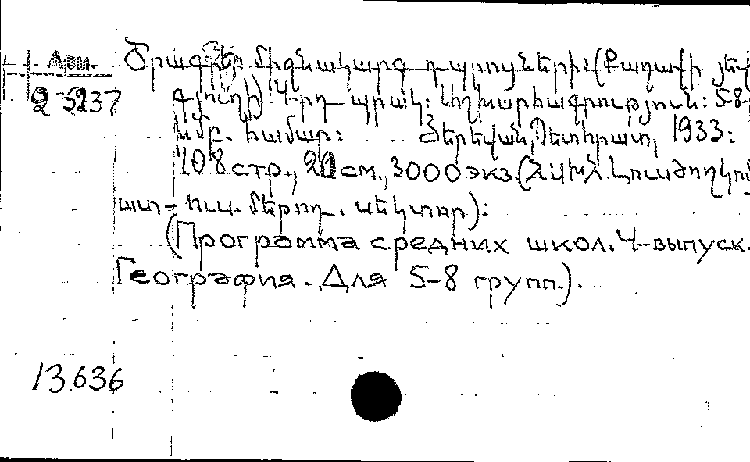 Арм.
Ծրագրեր միջնակարգ դպրոցների: (Քաղաքի յեվ
2-5237
գյուղի): 4-րդ պրակ: Աշխարհագրություն: 5-8
խմբ. համար: Յերեվան, Պետհրատ, 1933:
108 стр., 20 см., 3000 экз. (ՀՍԽՀ Լուսժողկոմ
ուս. մեթոդ. սեկտոր):
(Программа средних школ. 4-выпуск.
География. Для 5-8 групп.).
13.636